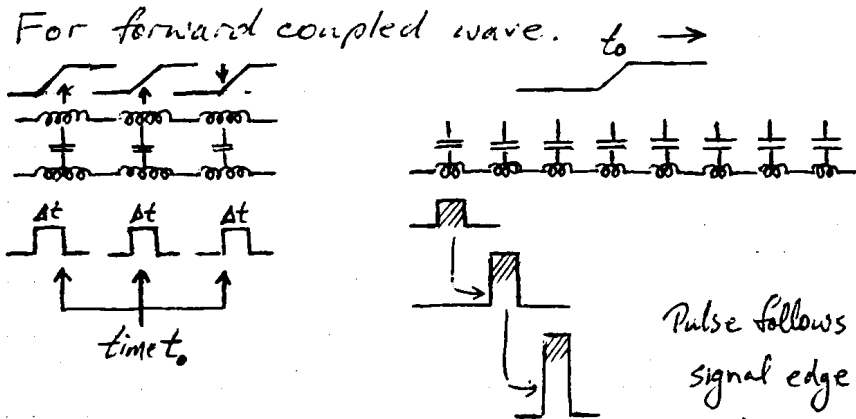 For forward coupled wave.
t₀
Δt Δt Δt
time t₀
Pulse follows
signal edge